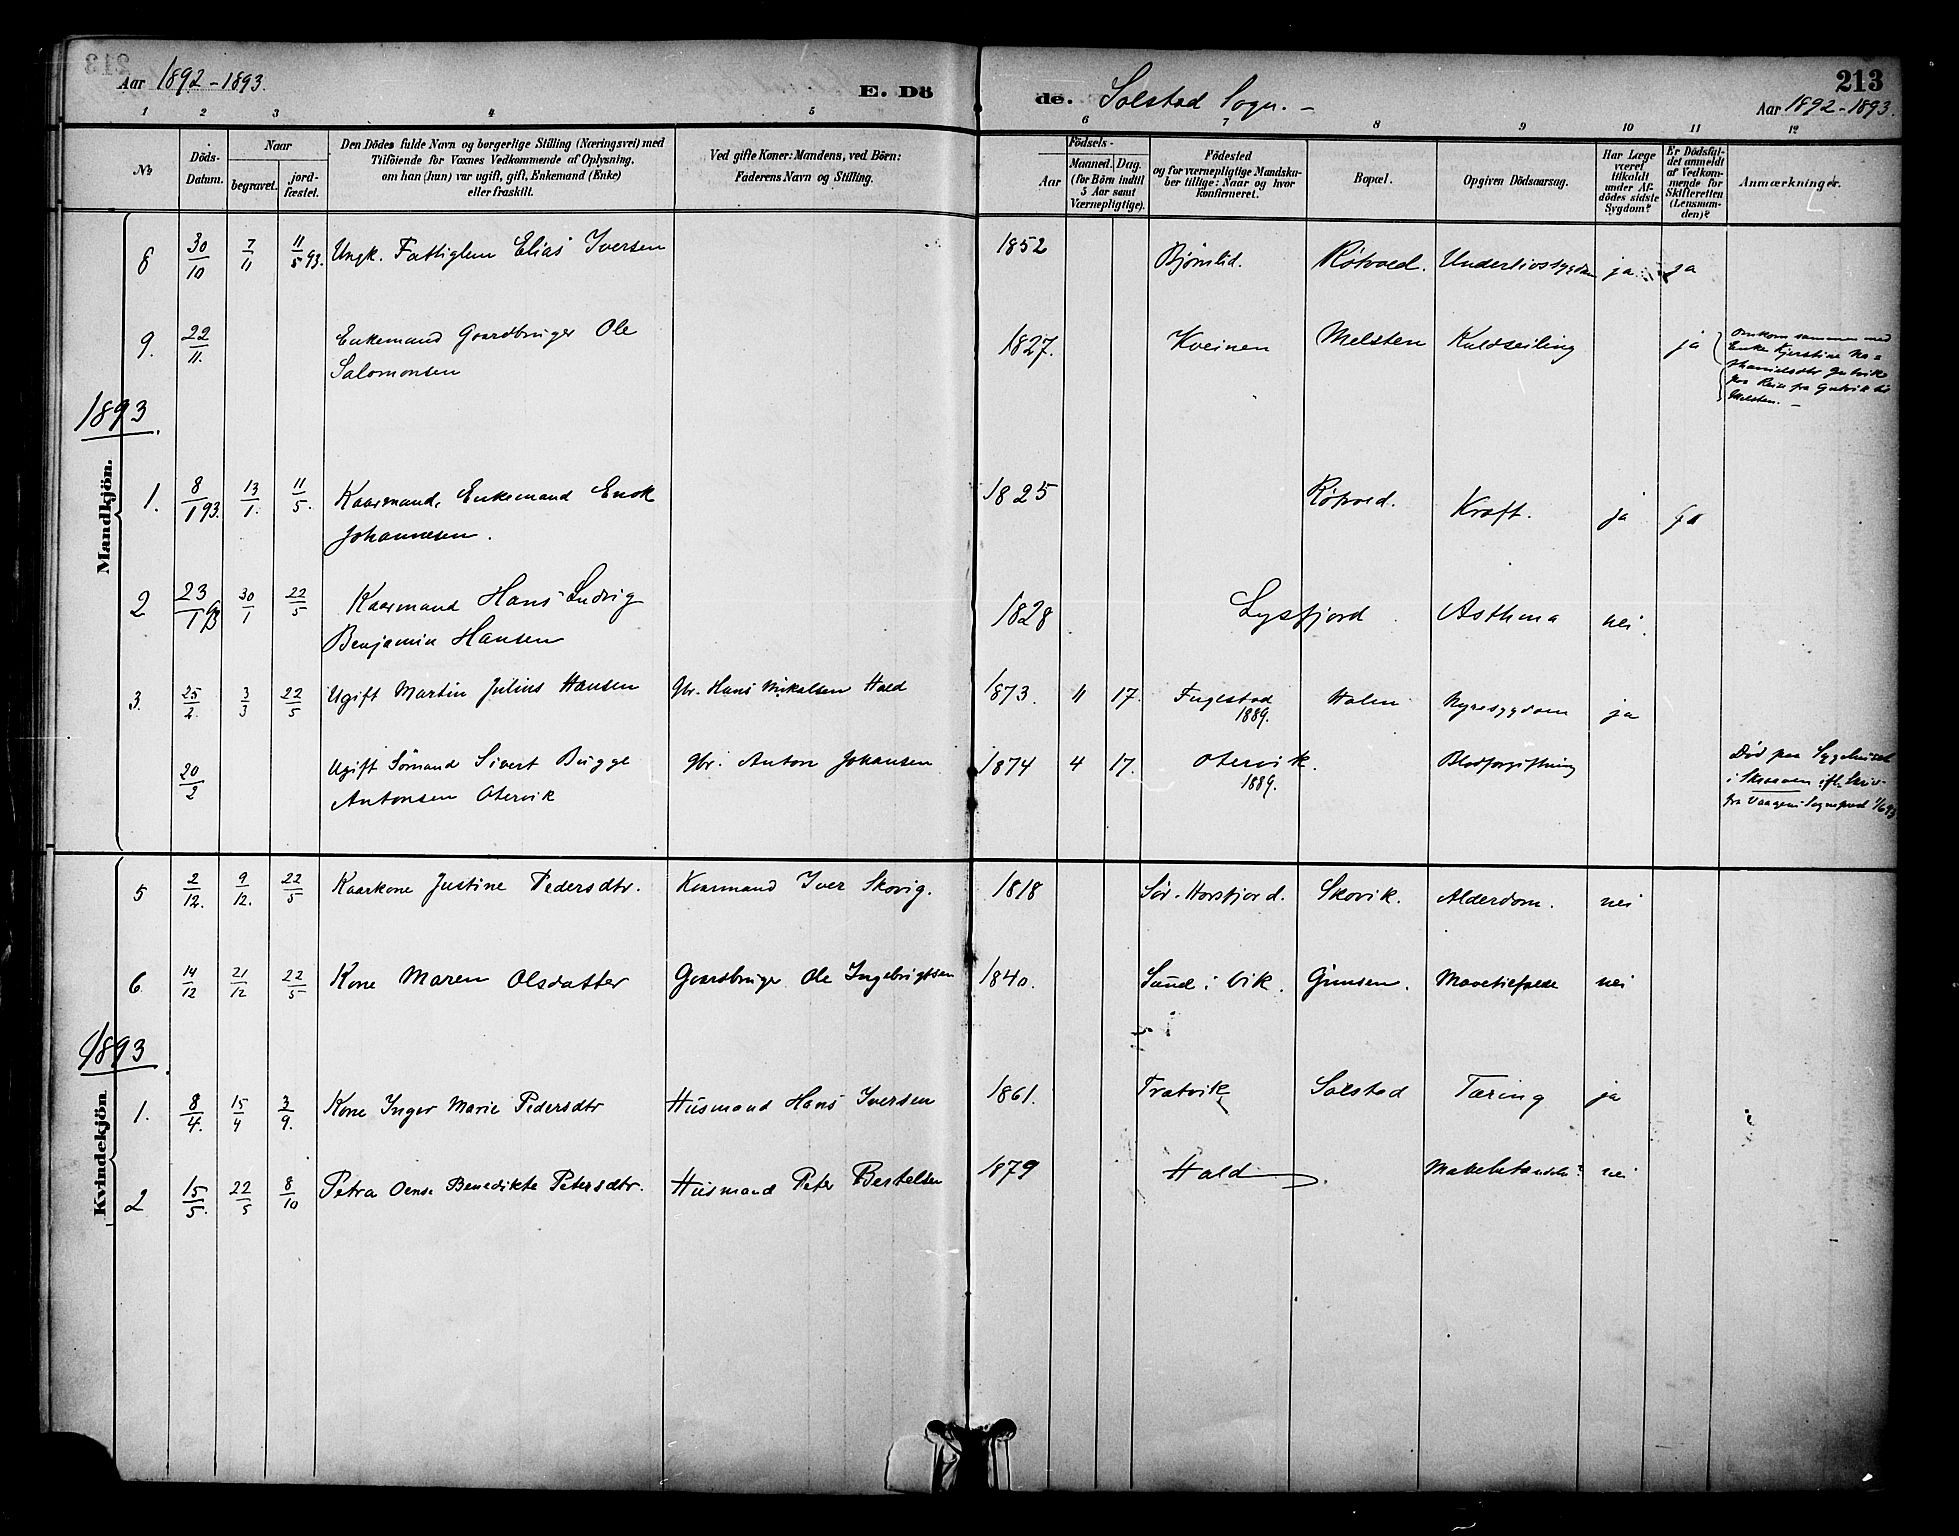 213
Aar 1892-1893.
E. Dö
de. Solstad Sogn. -
Aar 1892-1893.
1 2 3 4 5 6 7 8 9 10 11 12
No
Döds-Datum.
Naar
begravet.
jord-fæstet.
Den Dödes fulde Navn og borgerlige Stilling (Næringsvei) med
Tilföiende for Voxnes Vedkommende af Oplysning,
om han (hun) var ugift, gift, Enkemand (Enke)
eller fraskilt.
Ved gifte Koner: Mandens, ved Börn:
Faderens Navn og Stilling.
Födsels-
Aar
Maaned. Dag.
(for Börn indtil
5 Aar samt
Værnepligtige).
Födested
og for værnepligtige Mandska-
ber tillige: Naar og hvor
konfirmeret.
Bopæl.
Opgiven Dödsaarsag.
Har Læge
været
tilkaldt
under Af-
dödes sidste
Sygdom?
Er Dödsfal-
det anmeldt
af Vedkom-
mende for
Skifteretten
(Lensman-
den)?
Anmærkninger.
8 30/10 7/11 11/5 93. Ungk. Fattiglem Elias Iversen 1852 Bjørnlid. Røtvold. Underlivssygdom ja ja
9. 22/11. Enkemand Gaardbruger Ole
Salomonsen 1827. Kveinen Melsten Kuldseiling ja
Omkom sammen med
Enke Kjerstine
1893.
Mandkjön.
1. 8/1 93. 13/1. 11/5. Kaarmand, Enkemand Enok
Johannesen. 1825 Røtvold. Kraft. ja ja
2 23/1 93 30/1 22/5 Kaarmand Hans Ludvig
Benjamin Hansen 1828 Lysfjord Asthma nei.
3. 25/2. 3/3 22/5 Ugift Martin Julius Hansen Gbr. Hans Mikalsen Hald 1873. 11 17. Fuglstad
1889. Holm Nyresygdom ja
20/2 Ugift Sømand Sivert Bugge
Antonsen Otervik Gbr. Anton Johansen 1874 4 17. Otervik.
1889. Blodforgiftning
Död paa Sygehuset
i Skraaven
5 2/12. 9/12. 22/5 Kaarkone Justine Pedersdtr. Kaarmand Iver Skovig. 1818 Sør-Horsfjord. Skovik. Alderdom. nei
6 14/12 21/12 22/5 Kone Maren Olsdatter Gaardbruger Ole Ingebrigtsen 1840. Sund i Vik. Gimsen. nei
1893.
Kvindekjön.
1. 8/4. 15/4 3/9. Kone Inger Marie Pedersdtr Husmand Hans Iversen 1861. Tratvik Solstad Tæring ja
2 15/5. 22/5 8/10 Petra Benedikte Petersdtr. Husmand Peter Bertelsen 1879 Hald nei